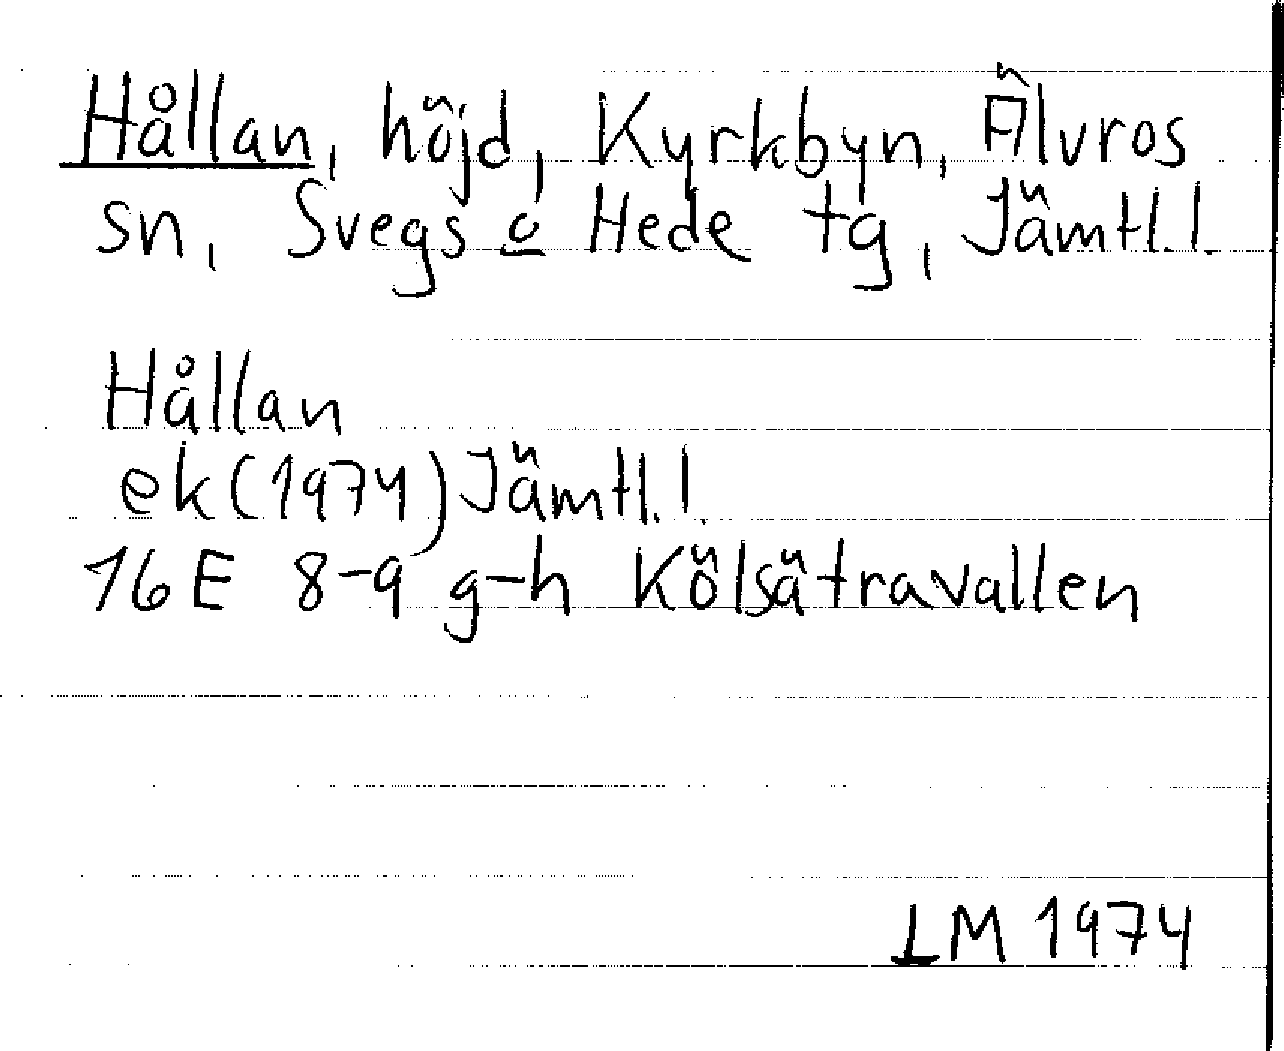 Hållan, höjd, Kyrkbyn, Älvros
sn, Svegs o Hede tg, Jämtl.l.
Hållan
ek(1974) Jämtl.l.
16E 8-9 g-h Kölsätravallen
LM 1974